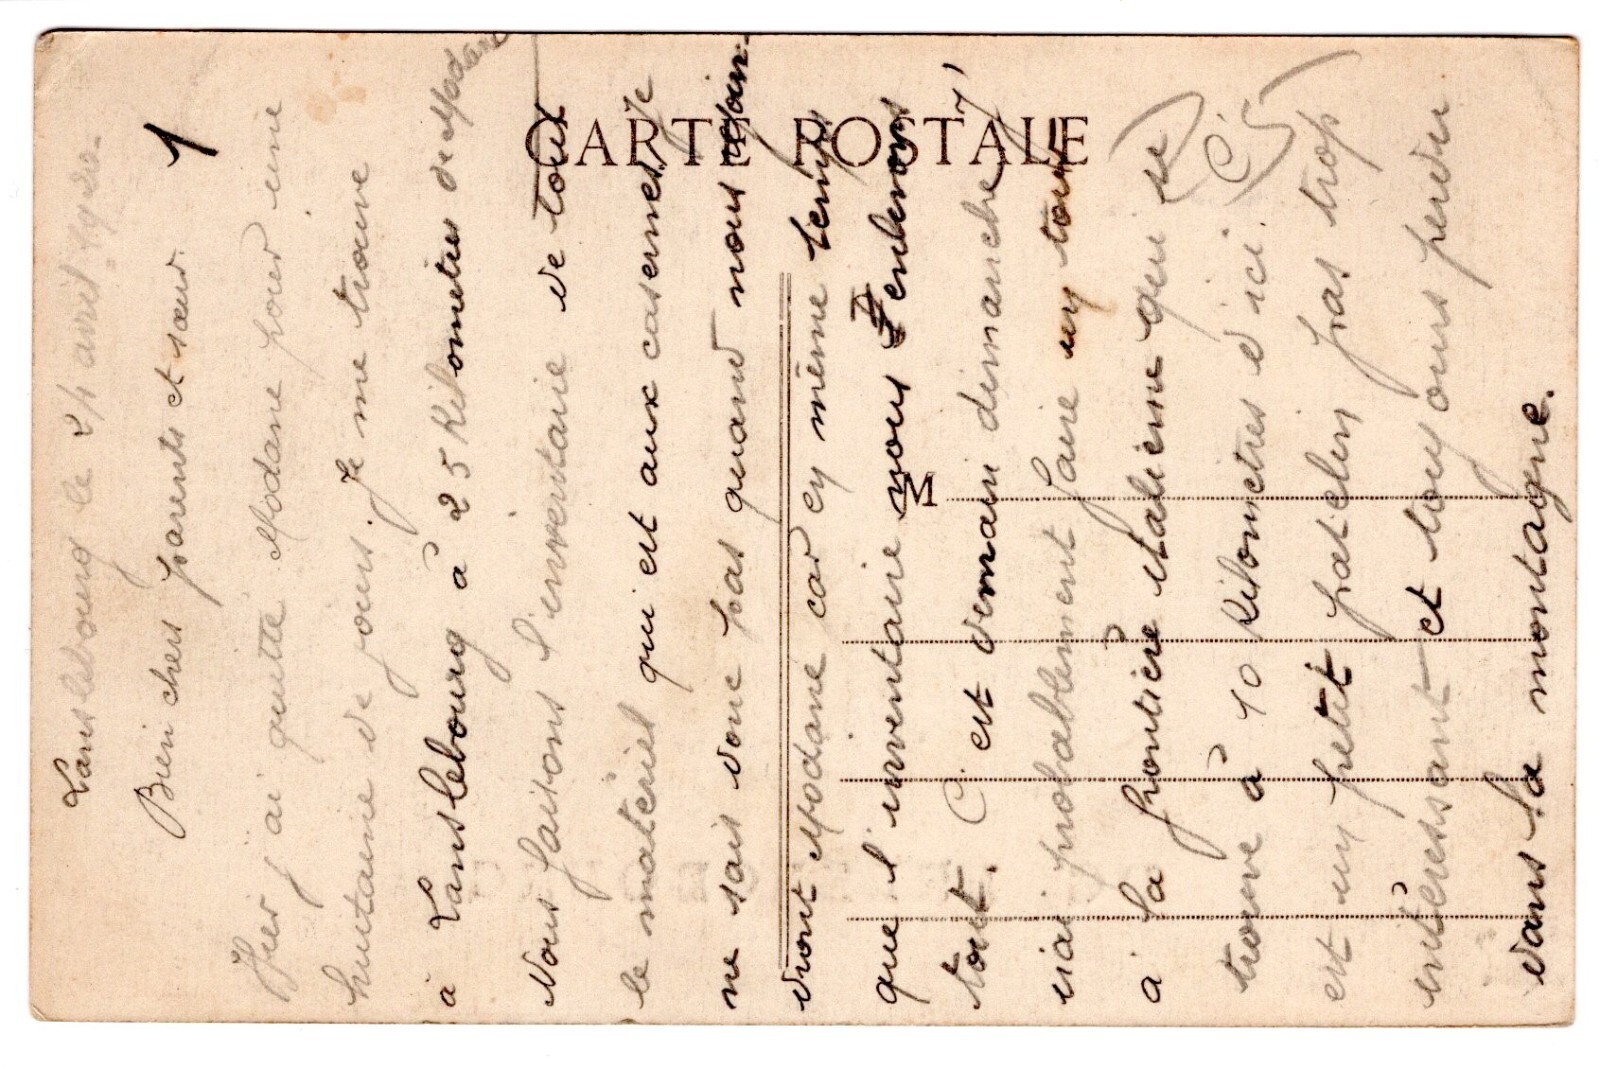 CARTE POSTALE
M
1
Lanslebourg le 24 avril
Bien chers parents et sœur.
Hier j ai quitté Modane pour une
huitaine de jours. Je me trouve
à Lanslebourg à 25 Kilometres de Modane
Nous faisons l'inventaire de tout
le matériel qui est aux casernes Je
ne sais donc pas quand nous
dront Modane car en même temps
que l inventaire nous enlevons
tout. C est demain dimanche j'
irai probablement faire un tour
à la frontière italienne qui se
trouve à 10 Kilometres d ici. C'
est un petit patelin pas trop
intéressant et toujours perdu
dans la montagne.